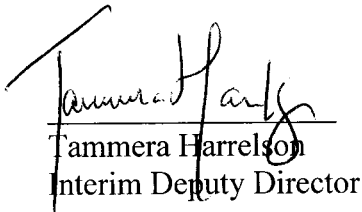 Tammera Harrelson
Interim Deputy Director